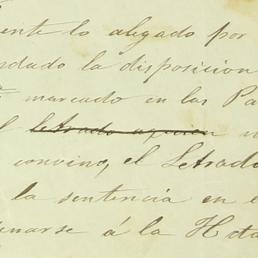 ente lo alegado por
dado la disposicion
marcado en las Pa
l letrado aquien
convino, el Letrado
la sentencia en e
enarse á la Hota